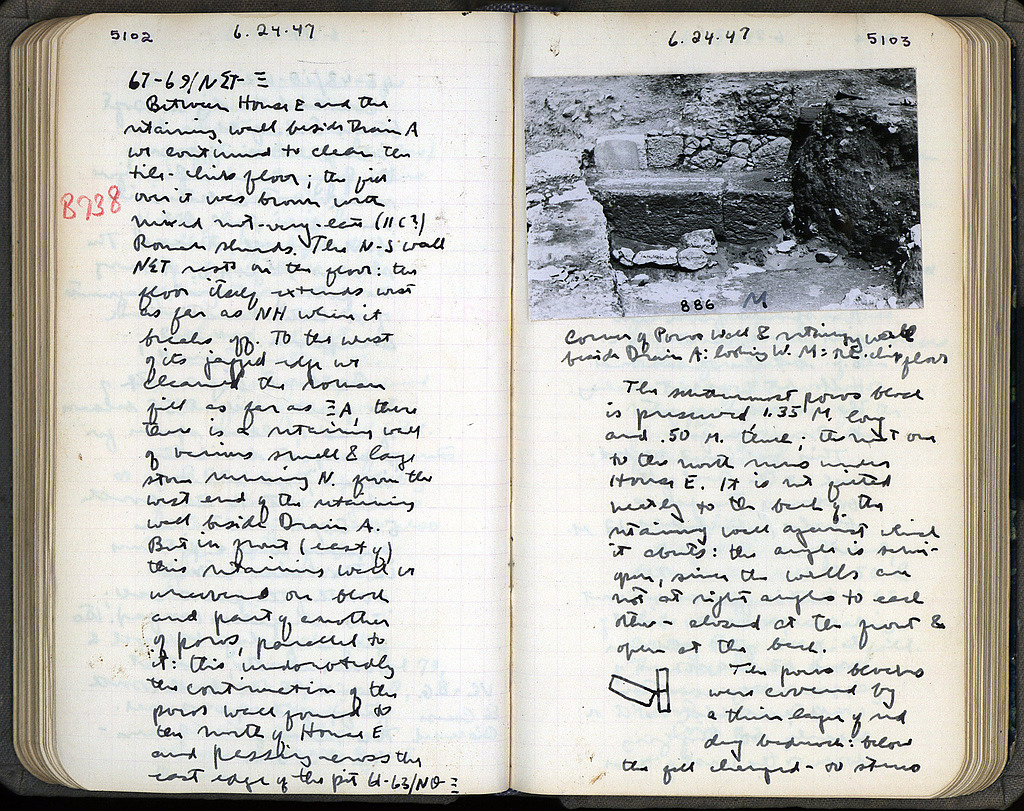 5102
6.24.47
67-69/ΝΣΤ-Ξ
Between House E and the
retaining wall beside Drain A
we continued to clean the
tile-chip floor; the fill
B738
over it was brown with
mixed not-very-late (IIC?)
Roman sherds. The N-S wall
ΝΣΤ rests on the floor: the
floor itself extends west
as far as NH where it
breaks off. To the west
of its jagged edge we
cleaned the Roman
fill as far as ΞA, where
there is a retaining wall
of various small & large
stones running N. from the
west end of the retaining
wall beside Drain A.
But in front (east of)
this retaining wall we
uncovered one block
and part of another
of poros, parallel to
it: this undoubtedly
the continuation of the
poros wall found to
the north of House E
and passing across the
east edge of the pit 61-63/ΝΘ-Ξ
6.24.47
5103
886 M
Corner of Poros Wall & retaining wall
beside Drain A: looking W. M: tile chip floor
The southernmost poros block
is preserved 1.35 M. long
and .50 M. thick; the next one
to the north runs under
House E. It is not fitted
neatly to the back of the
retaining wall against which
it abuts: the angle is semi-
open, since the walls are
not at right angles to each
other - closed at the front &
open at the back.
The poros blocks
were covered by
a thin layer of red
dug bedrock: below
the fill changed - so stereo